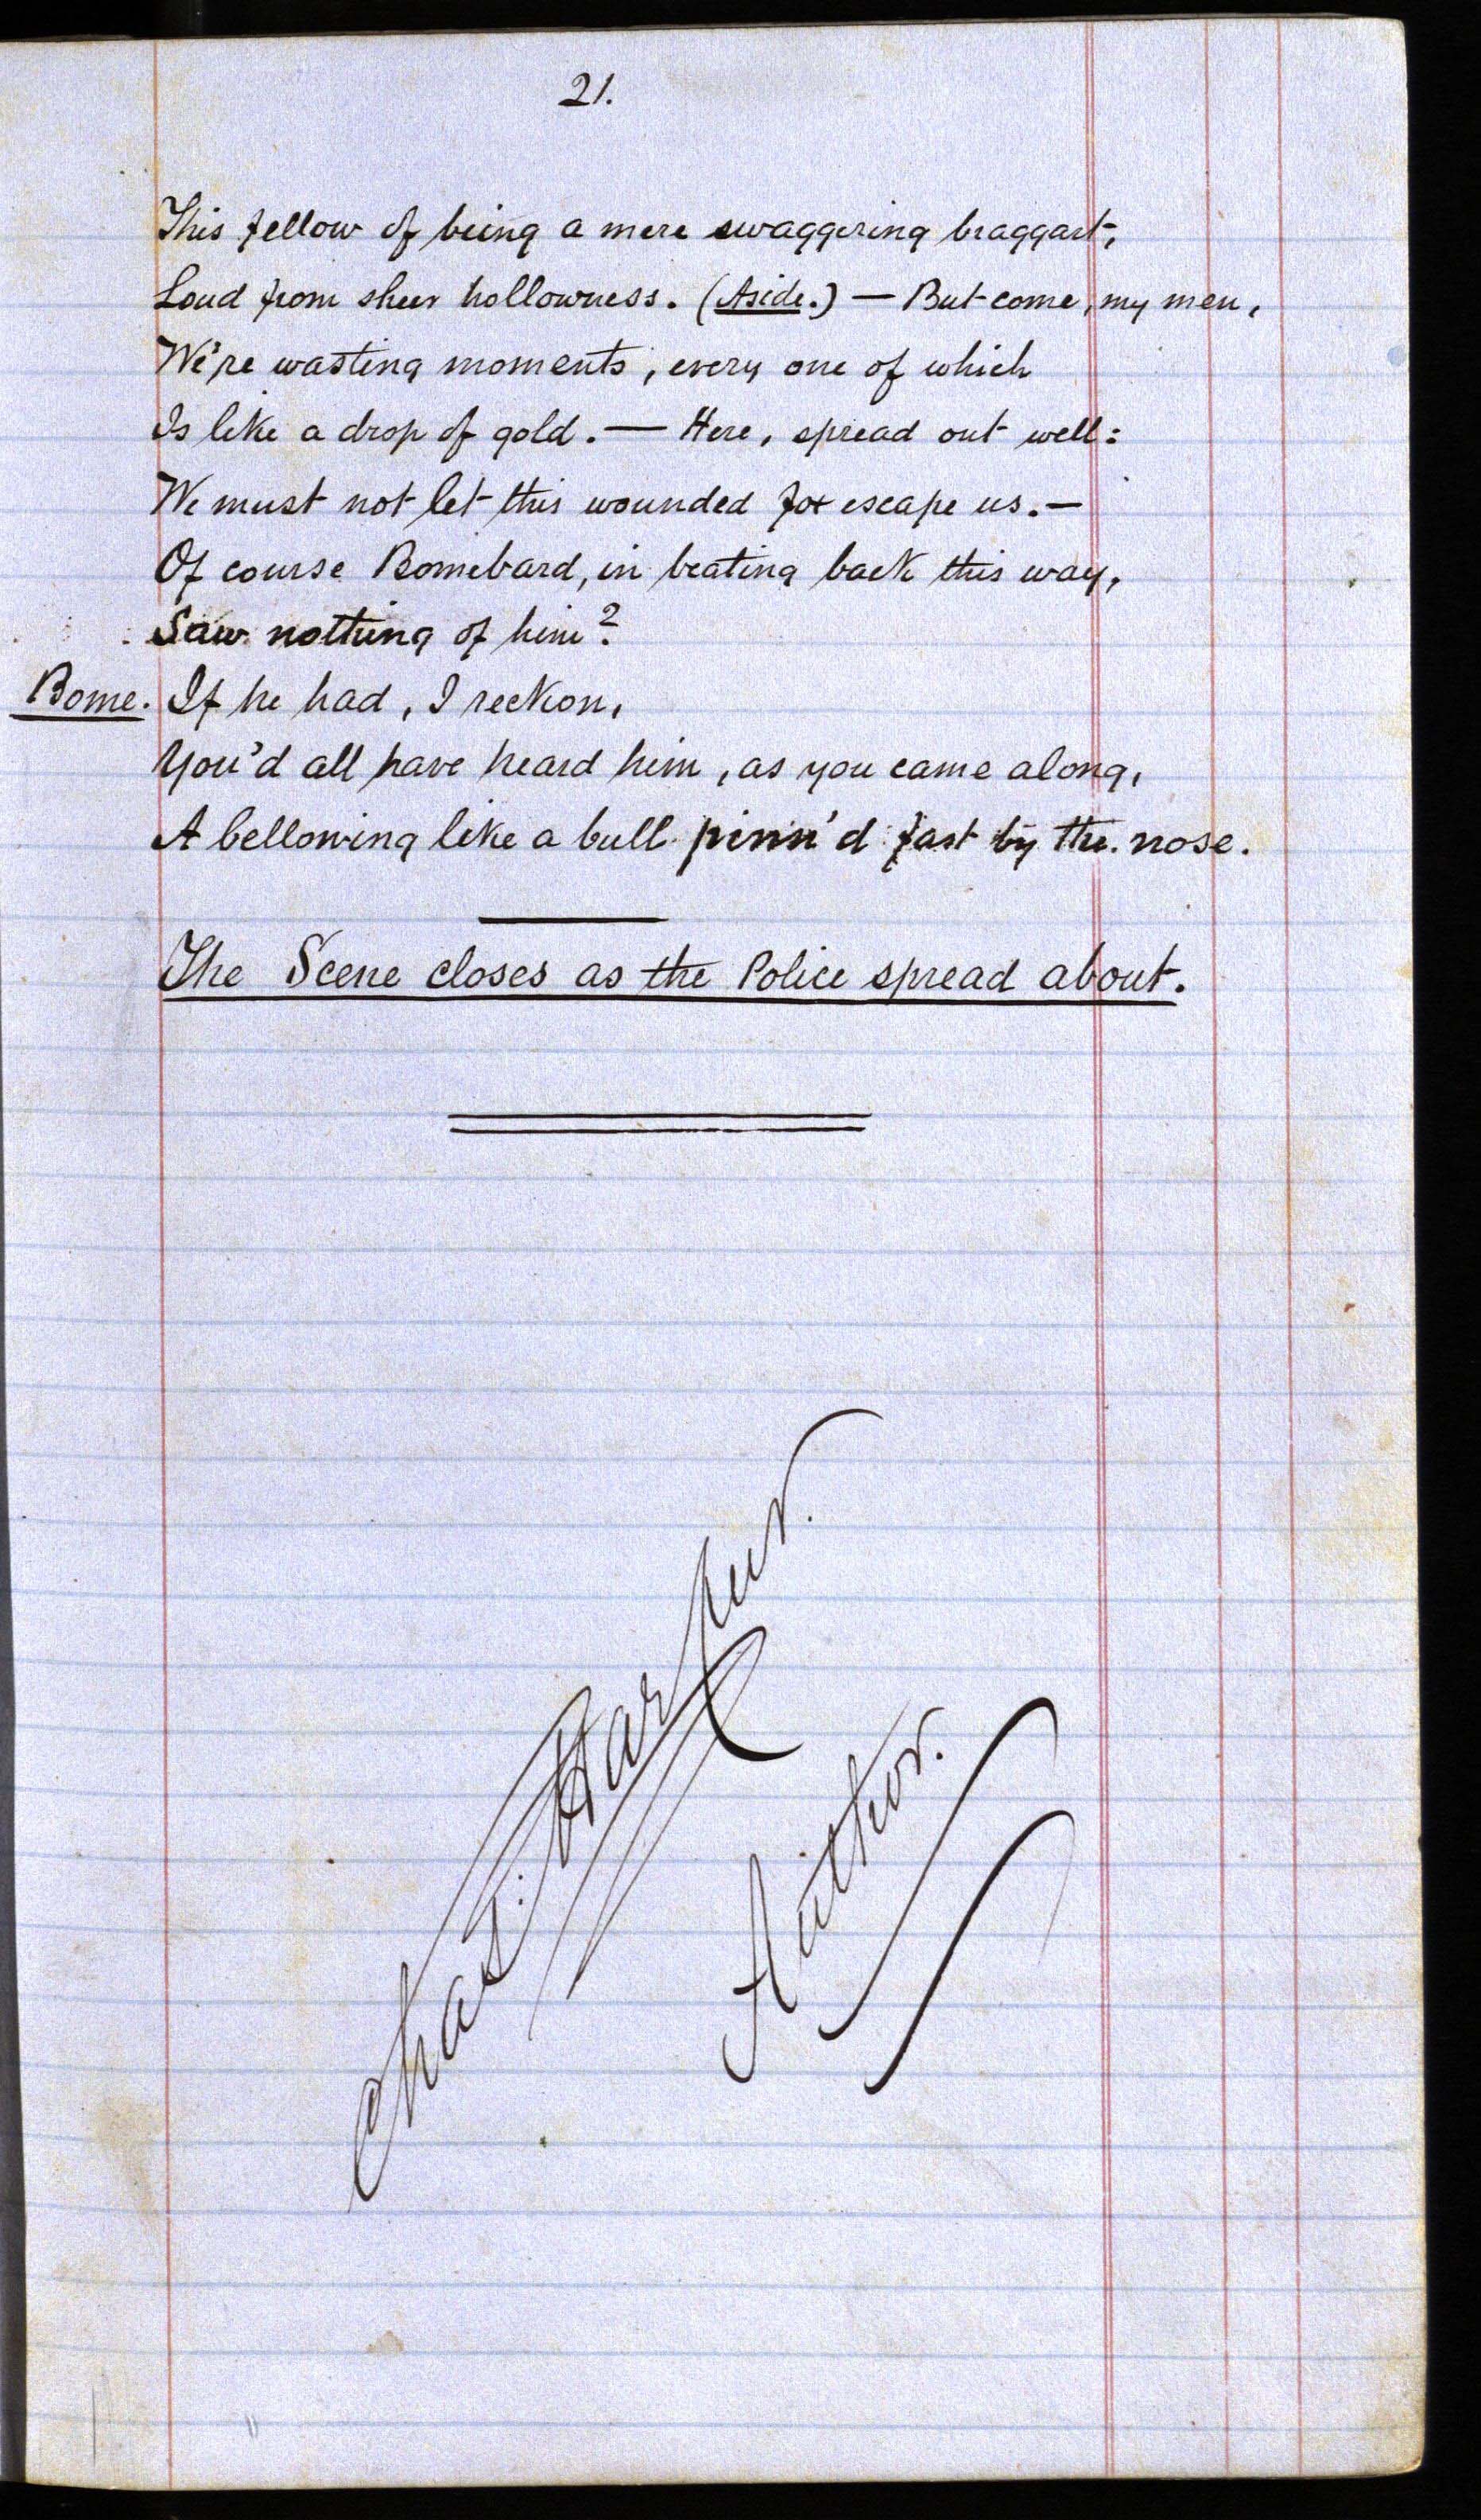 21.
This fellow of being a mere swaggering braggart,
Loud from sheer hollowness. (Aside.) — But come, my men,
We're wasting moments, every one of which
Is like a drop of gold. — Here, spread out well:
We must not let this wounded fox escape us. —
Of course Bomebard, in beating back this way,
Saw nothing of him?
Bome. If he had, I reckon,
You'd all have heard him, as you came along,
A bellowing like a bull pinn'd fast by the nose.
The Scene closes as the Police spread about.
Chas. Harpur.
Author.